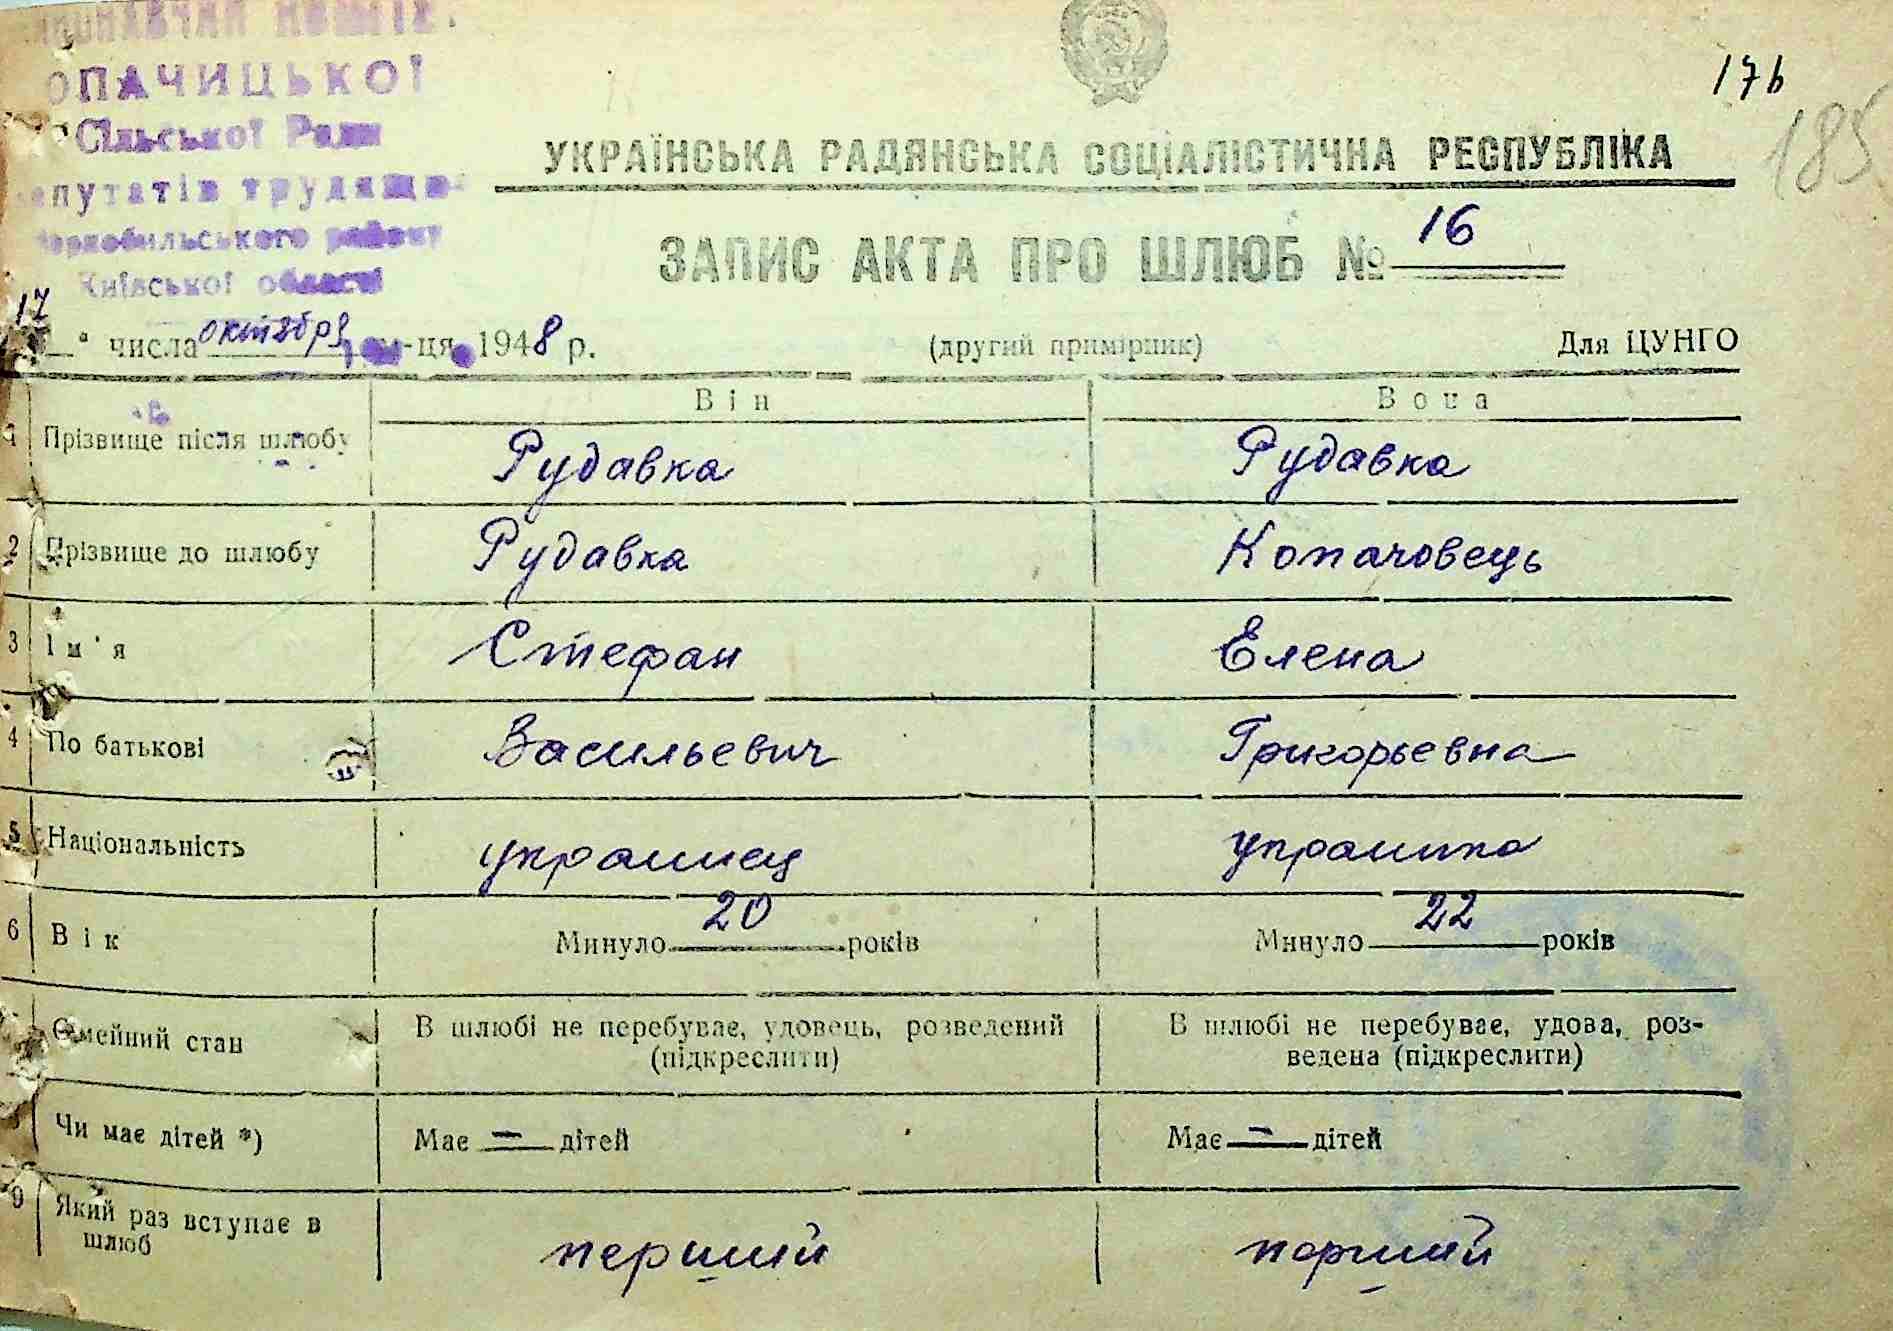 ОПАЧИЦЬКОЇ
Сільської Ради
депутатів трудящих
Чорнобильського району
Київської області
17б
185
УКРАЇНСЬКА РАДЯНСЬКА СОЦІАЛІСТИЧНА РЕСПУБЛІКА
ЗАПИС АКТА ПРО ШЛЮБ № 16
17 " числа октября м-ця 1948 р.
(другий примірник)
Для ЦУНГО
Він
Вона
1 Прізвище після шлюбу
Рудавка
Рудавка
2 Прізвище до шлюбу
Рудавка
Копачовець
3 Ім'я
Стефан
Елена
4 По батькові
Васильевич
Григорьевна
5 Національність
украинец
украинка
6 Вік
Минуло 20 років
Минуло 22 років
Сімейний стан
В шлюбі не перебуває, удовець, розведений
(підкреслити)
В шлюбі не перебуває, удова, роз-
ведена (підкреслити)
Чи має дітей *)
Має — дітей
Має — дітей
9 Який раз вступає в
шлюб
перший
перший